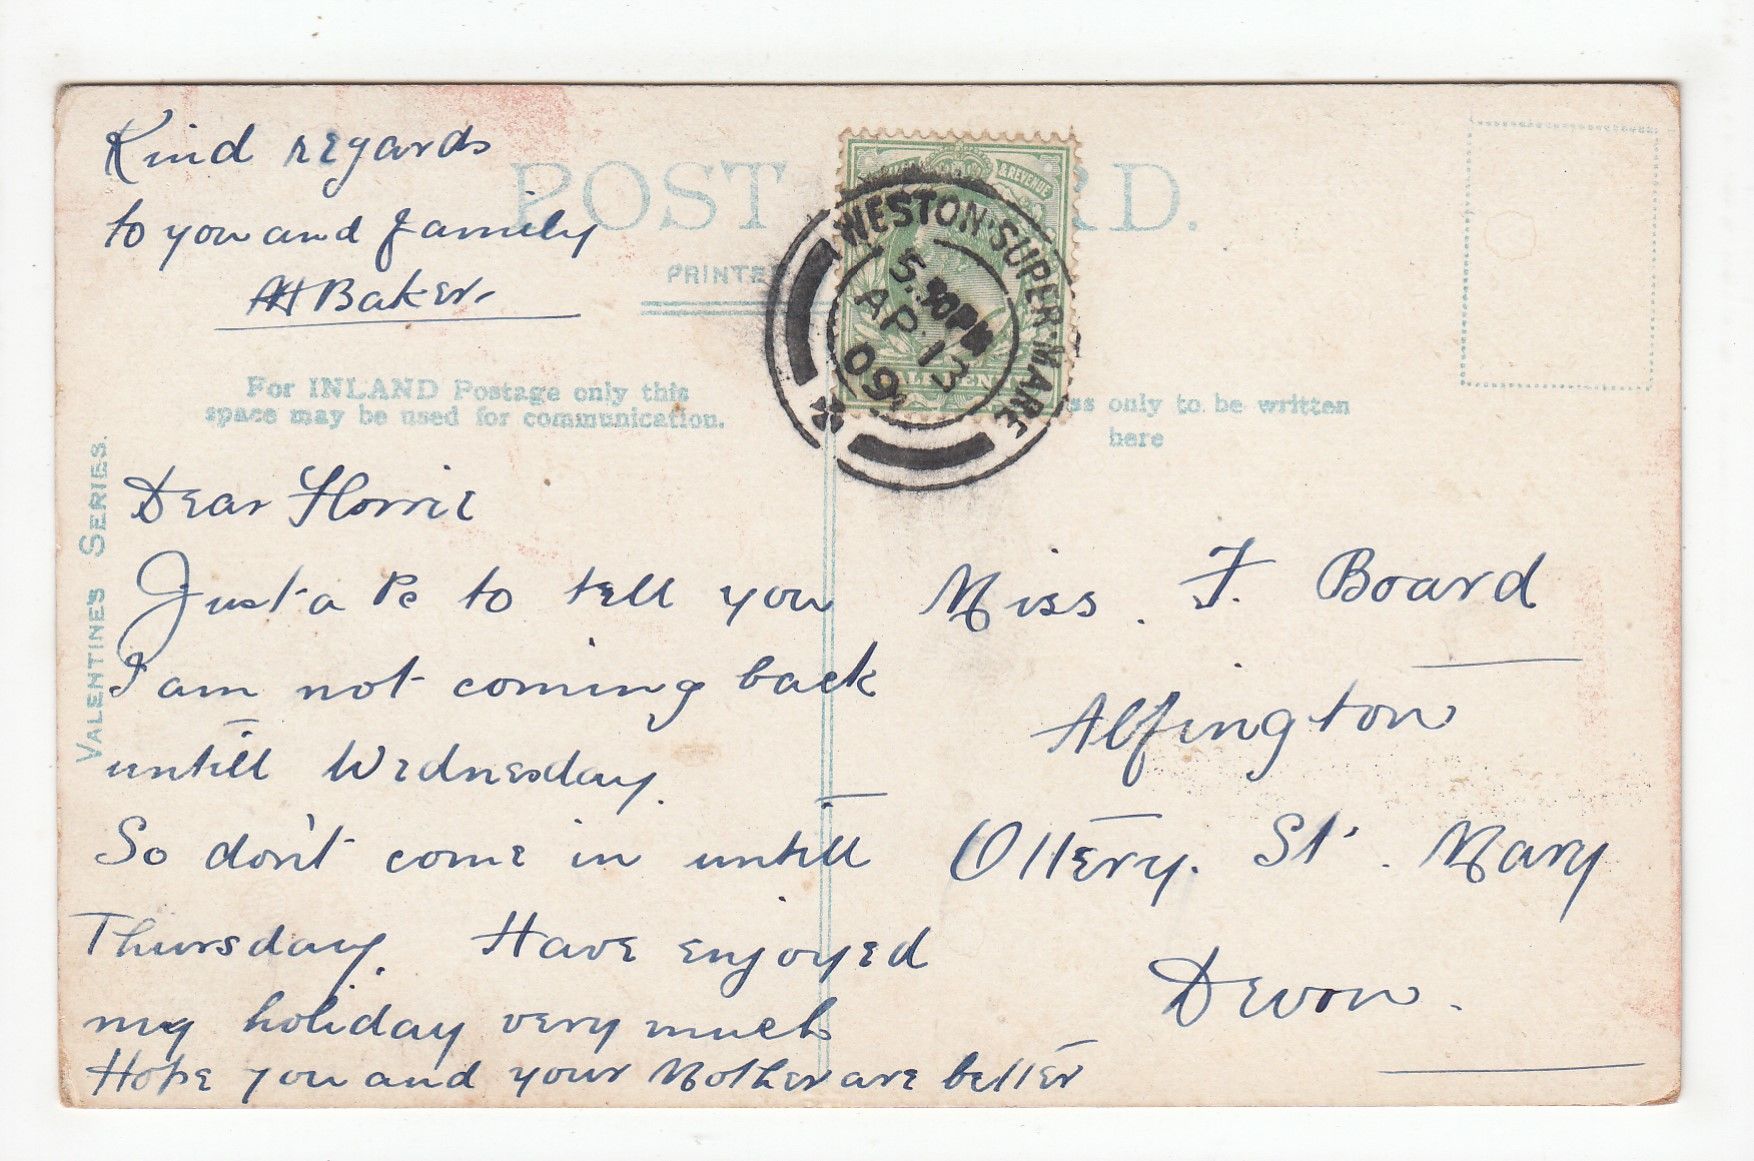 Kind regards
to you and family
AH Baker
POST RD.
PRINTE
For INLAND Postage only this
space may be used for communication.
ss only to be written
here
& REVENUE
WESTON·SUPER·MARE
5.30PM
AP 13
09
VALENTINE'S SERIES.
Dear Florrie
Just a Pc to tell you
I am not coming back
untill Wednesday.
So don't come in untill
Thursday. Have enjoyed
my holiday very much
Hope you and your Mother are better
Miss. F. Board
Alfington
Ottery. St. Mary
Devon.